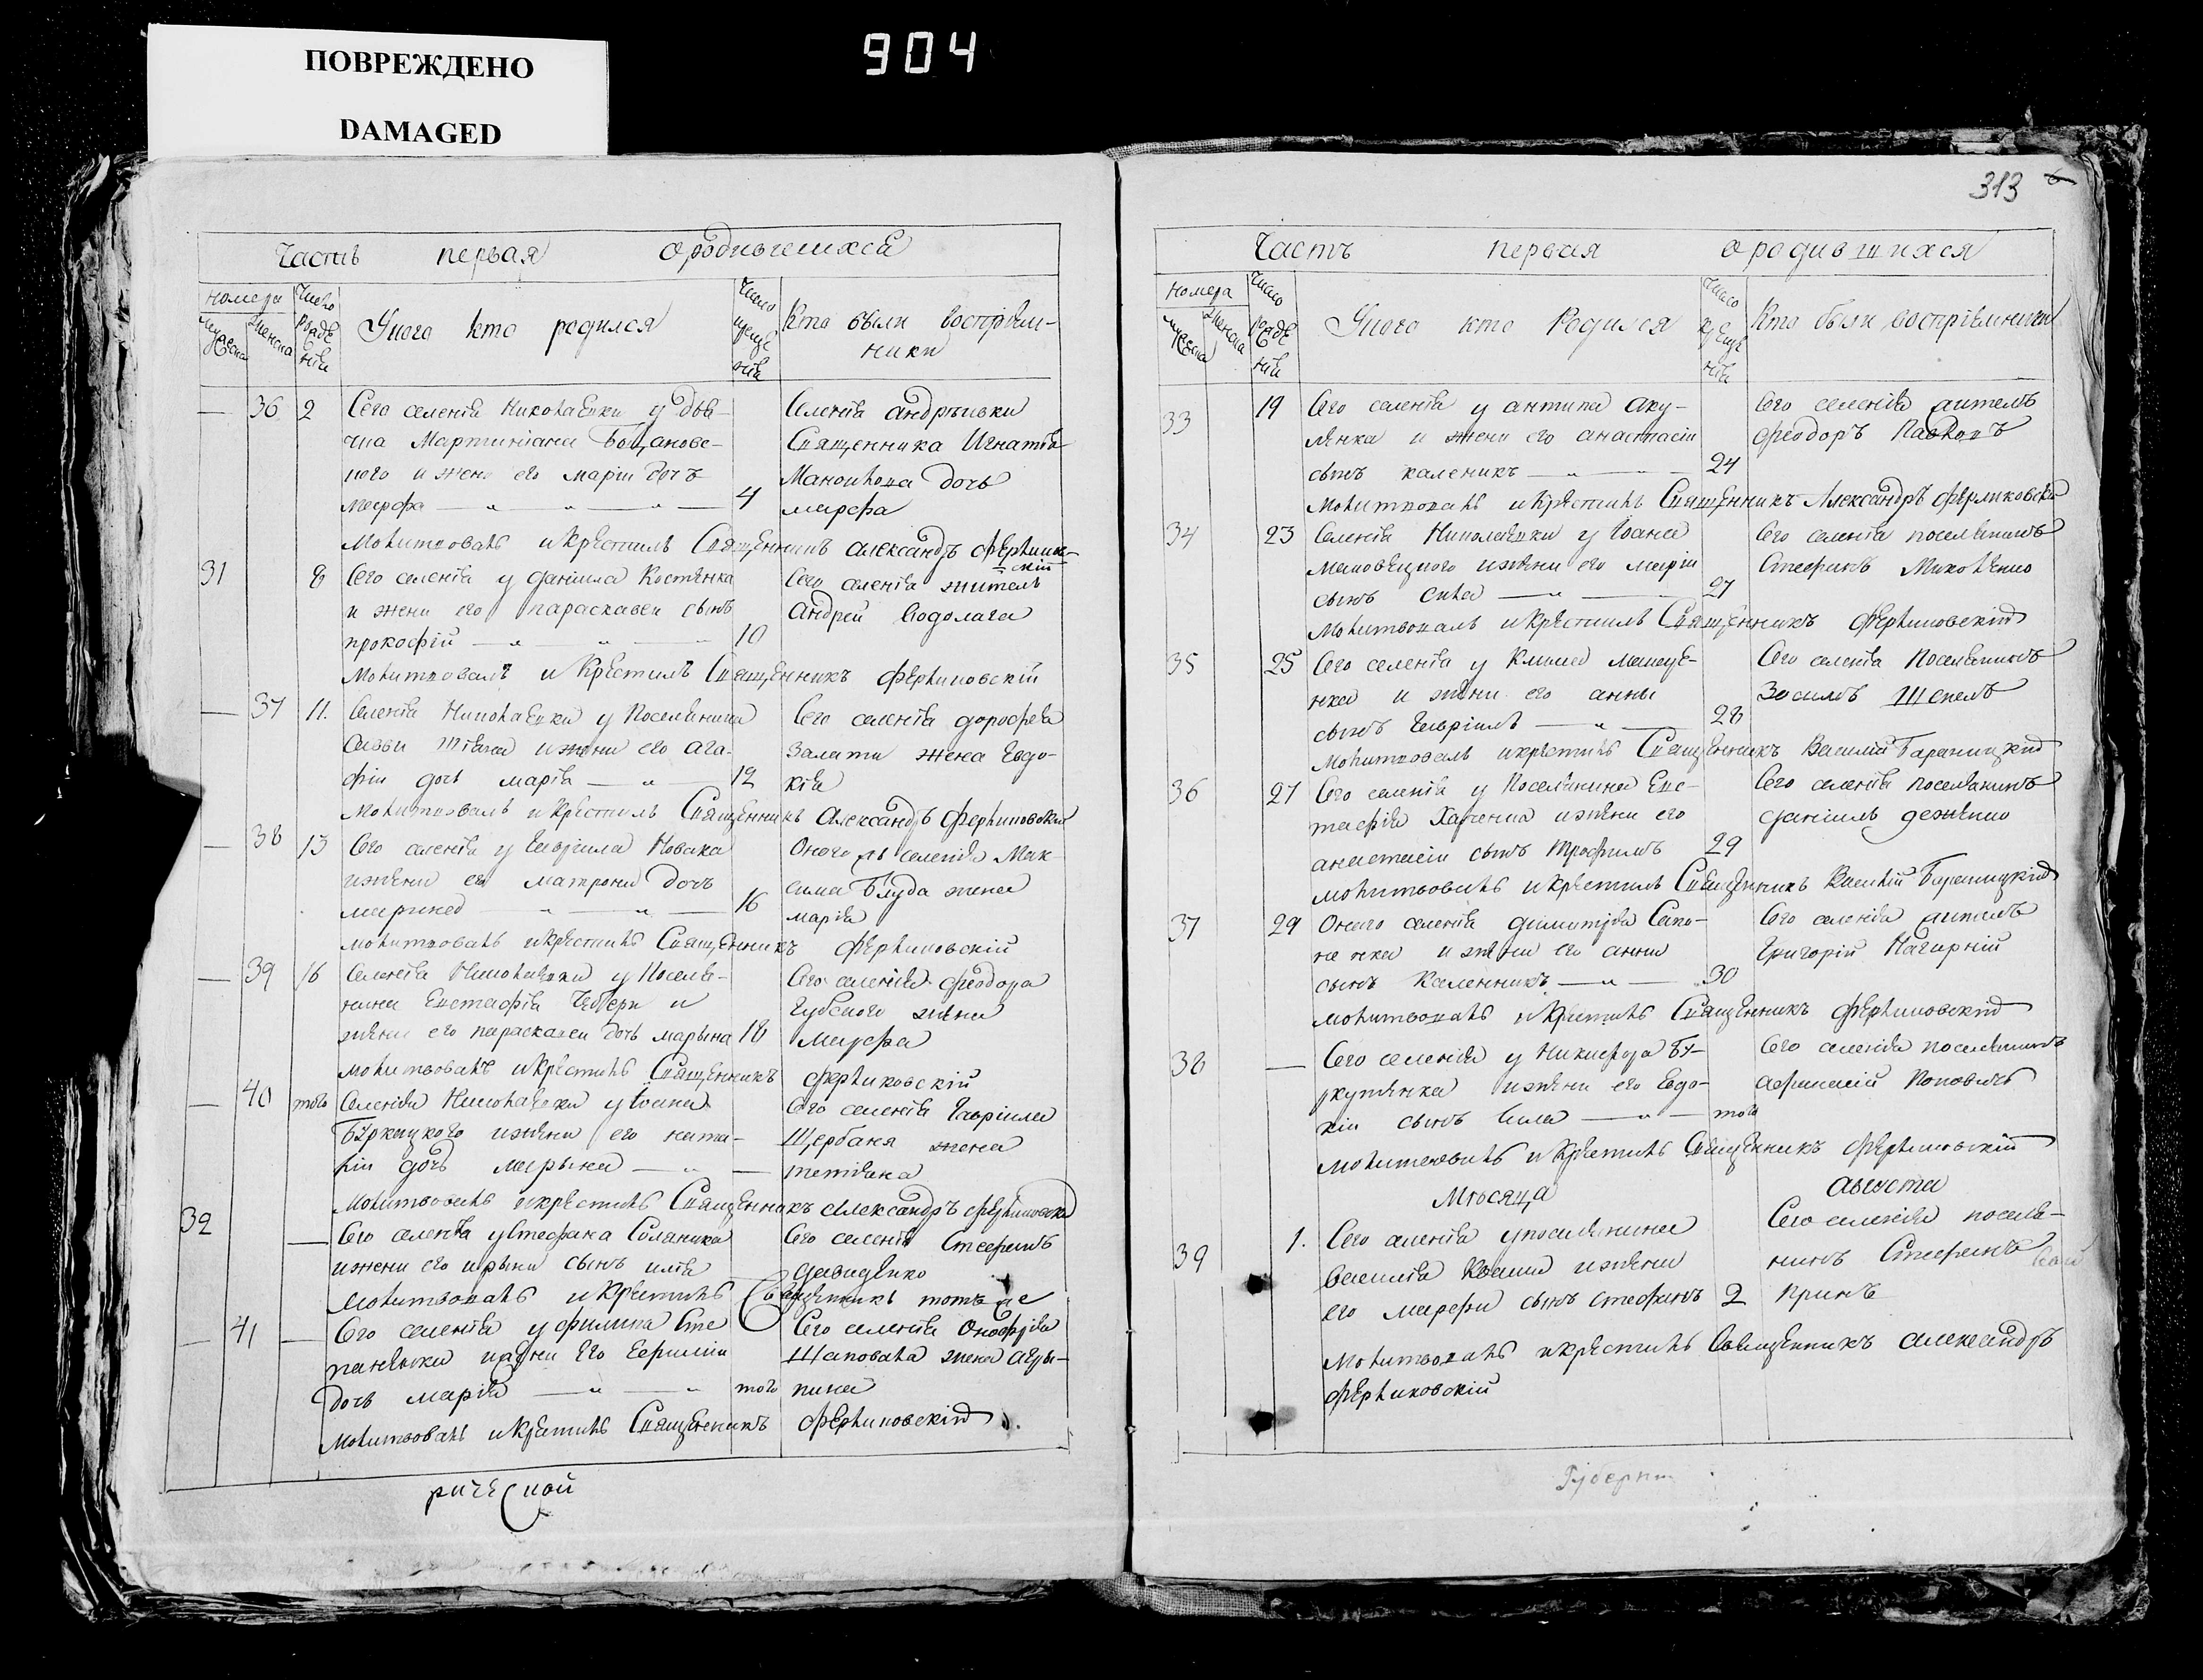 ПОВРЕЖДЕНО
DAMAGED
904
313
Часть первая о родившихся
номера
мужеска
женска
Число рожденія
У кого кто родился
Число крещенія
Кто были воспріем-
ники
36 2 Сего селенія Николаевки у дья-
чка Мартиніана
ного и жени его маріи дочь
марфа 4
Селенія андрѣивки
Священника Игнатія
дочь
марфа
Молитвовалъ и Крестилъ Священникъ александръ Ферликов-
скій
31 8 Сего селенія у даніила Костѣнка
и жени его параскавеи сынъ
прокофій 10
Сего селенія жителъ
Андрей Водолага
Молитвовалъ и Крестилъ Священникъ Ферликовскій
37 11. Селенія Николаевки у Поселянина
Савви и жени его ага-
фіи дочь марія 12
Сего селенія дорофея
Залати жена Евдо-
кія
Молитвовалъ и Крестилъ Священникъ Александръ Ферликовскій
38 13 Сего селенія у Гавріила Новака
и жени его матрони дочь
марина 16
Оного селенія Мак-
сима Блуда жена
марія
молитвовалъ и крестилъ Священникъ Ферликовскій
39 16 Селенія Николаевки у Поселя-
нина Евстафія и
жени его параскавеи дочь марына 18
Сего селенія феодора
Губского жена
Марфа
молитвовалъ и крестилъ Священникъ Ферликовскій
40 того Селенія Николаевки у Іоана
Буркацкого и жени его ната-
ліи дочь марына
Сего селенія Гавріила
Щербаня жена
татіяна
Молитвовалъ и крестилъ Священникъ Александръ Ферликовскій
32 Сего селенія у Стефана Соляника
и жени его ирыни сынъ илія
Сего селенія Стефанъ
давиденко
Молитвовалъ и Крестилъ Священникъ тотъ же
41 Сего селенія у филипа Сте-
панѣнки и жени Его Ефиміи
дочь марія того
Сего селенія Онофрія
Шаповала жена агри-
пина
Молитвовалъ и Крестилъ Священникъ Ферликовскій
рической
Часть первая о родившихся
номера
мужеска
женска
Число рожденія
У кого кто Родился
Число крещенія
Кто были воспріемники
33 19 Сего селенія у антипа аку-
лѣнка и жени его анастасіи
сынъ каленикъ 24
Сего селенія жителъ
феодоръ Павловъ
Молитвовалъ и Крестилъ Священникъ Александръ Ферликовскій
34 23 Селенія Николаевки у Іоана
маковецкого и жени его маріи
сынъ сила 27
Сего селенія поселянинъ
Стефанъ
Молитвовалъ и Крестилъ Священникъ Ферликовскій
35 25 Сего селенія у Клима
нка и жени его анны
сынъ Гавріилъ 28
Сего селенія Поселянинъ
Зосимъ
Молитвовалъ и крестилъ Священникъ Василій Бараницкій
36 27 Сего селенія у Поселянина Евс-
тафія Харченка и жени его
анастасіи сынъ Трофимъ 29
Сего селенія поселянинъ
даніилъ
молитвовалъ и крестилъ Священникъ Василій Бараницкій
37 29 Оного селенія димитрія Сапо-
ненка и жени его анни
сынъ Каленникъ 30
Сего селенія житель
Григорій Нагирній
молитвовалъ и Крестилъ Священникъ Ферликовскій
38 Сего селенія у Никифора Бу-
ркутѣнка и жени его Евдо-
кіи сынъ Сила того
Сего селенія поселянинъ
афанасій Поповичъ
Молитвовалъ и Крестилъ Священникъ Ферликовскій
Мѣсяца августа
39 1. Сего селенія у поселянина
василія и жени
его марфи сынъ стефанъ 2
Сего селенія поселя-
нинъ Стефанъ
Молитвовалъ и крестилъ Священникъ александръ
Ферликовскій
Губерни